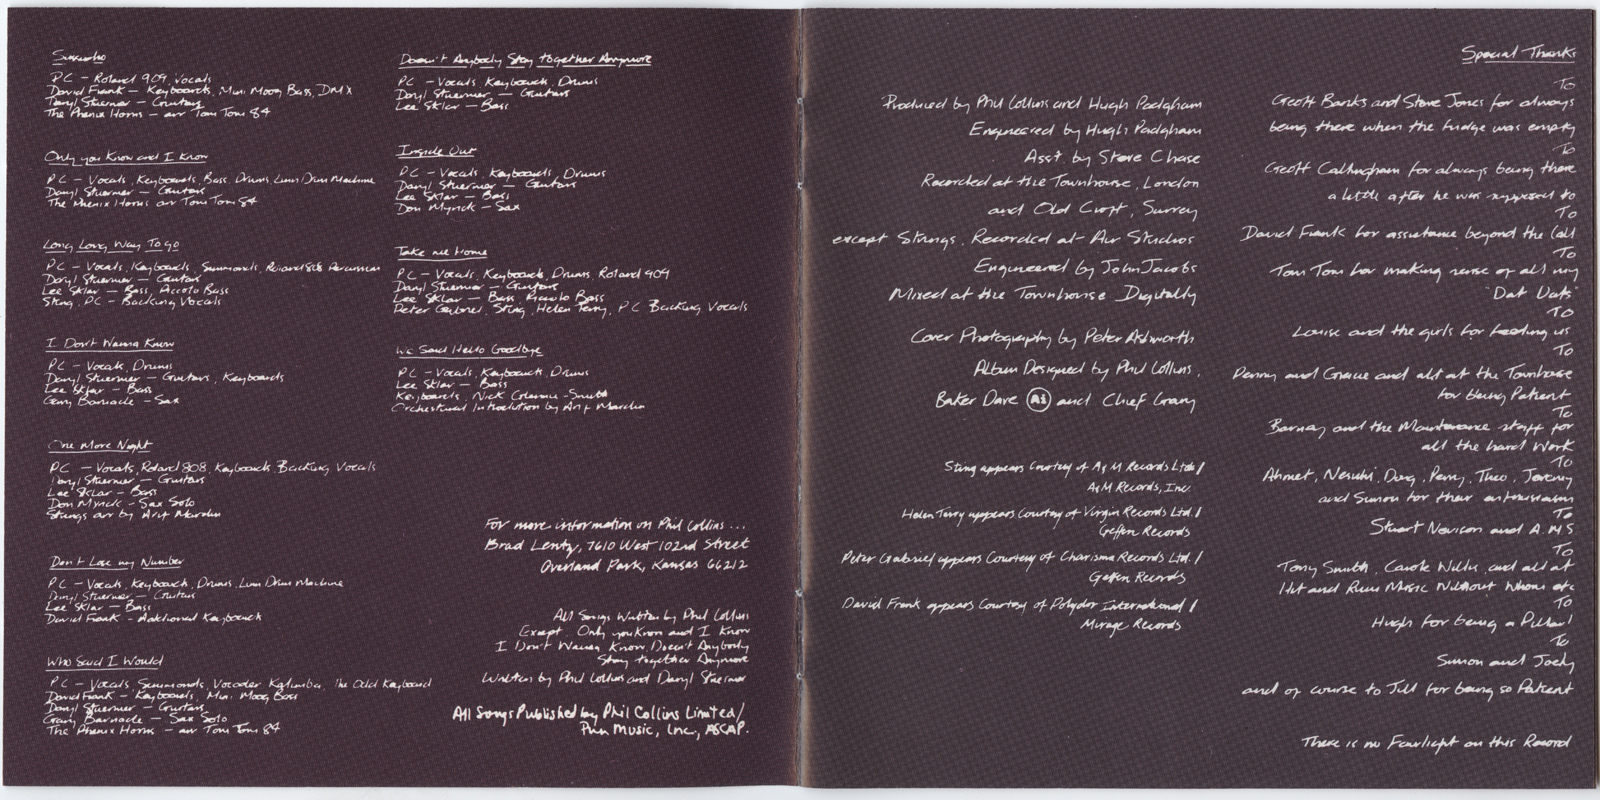 Sussudio
PC - Roland 909, Vocals
David Frank - Keyboards, Mini Moog Bass, DMX
Daryl Stuermer - Guitars
The Phenix Horns - arr Tom Tom 84
Only you Know and I Know
PC - Vocals, Keyboards, Bass, Drums, Linn Drum Machine
Daryl Stuermer - Guitars
The Phenix Horns arr Tom Tom 84
Long Long Way To go
PC - Vocals, Keyboards, Simmonds, Roland 808 Percussion
Daryl Stuermer - Guitars
Lee Sklar - Bass, Piccolo Bass
Sting, PC - Backing Vocals
I Don't Wanna Know
PC - Vocals, Drums
Daryl Stuermer - Guitars, Keyboards
Lee Sklar - Bass
Gary Barnacle - Sax
One More Night
PC - Vocals, Roland 808, Keyboards, Backing Vocals
Daryl Stuermer - Guitars
Lee Sklar - Bass
Don Myrick - Sax Solo
Strings arr by Arif Mardin
Don't Lose my Number
PC - Vocals, Keyboards, Drums, Linn Drum Machine
Daryl Stuermer - Guitars
Lee Sklar - Bass
David Frank - Additional Keyboards
Who Said I Would
PC - Vocals, Simmonds, Vocoder Kalimba, The Odd Keyboard
David Frank - Keyboards, Mini Moog Bass
Daryl Stuermer - Guitars
Gary Barnacle - Sax Solo
The Phenix Horns - arr Tom Tom 84
Doesn't Anybody Stay together Anymore
PC - Vocals, Keyboards, Drums
Daryl Stuermer - Guitars
Lee Sklar - Bass
Inside Out
PC - Vocals, Keyboards, Drums
Daryl Stuermer - Guitars
Lee Sklar - Bass
Don Myrick - Sax
Take me Home
PC - Vocals, Keyboards, Drums Roland 909
Daryl Stuermer - Guitars
Lee Sklar - Bass, Piccolo Bass
Peter Gabriel, Sting, Helen Terry, PC Backing Vocals
We Said Hello Goodbye
PC - Vocals, Keyboards, Drums
Lee Sklar - Bass
Keyboards, Nick Glennie-Smith
Orchestral Introduction by Arif Mardin
For more information on Phil Collins ...
Brad Lentz, 7610 West 102nd Street
Overland Park, Kansas 66212
All Songs Written by Phil Collins
Except, Only you Know and I Know
I Don't Wanna Know, Doesn't Anybody
Stay together Anymore
Written by Phil Collins and Daryl Stuermer
All Songs Published by Phil Collins Limited/
Pun Music, Inc., ASCAP.
Produced by Phil Collins and Hugh Padgham
Engineered by Hugh Padgham
Asst. by Steve Chase
Recorded at the Townhouse, London
and Old Croft, Surrey
except Strings, Recorded at Air Studios
Engineered by John Jacobs
Mixed at the Townhouse Digitally
Cover Photography by Peter Ashworth
Album Designed by Phil Collins,
Baker Dave Ai and Chief Gray
Sting appears Courtesy of A&M Records Ltd/
A&M Records, Inc.
Helen Terry appears Courtesy of Virgin Records Ltd/
Geffen Records
Peter Gabriel appears Courtesy of Charisma Records Ltd/
Geffen Records
David Frank appears Courtesy of Polydor International/
Mirage Records
Special Thanks
To
Geoff Banks and Steve Jones for always
being there when the fridge was empty
To
Geoff Callingham for always being there
a little after he was supposed to
To
David Frank for assistance beyond the Call
To
Tom Tom for making sense of all my
"Dat Dats"
To
Louise and the girls for feeding us
To
Penny and Gracie and all at the Townhouse
for being Patient
To
Barney and the Maintenance staff for
all the hard work
To
Ahmet, Nesuhi, Doug, Perry, Theo, Jeremy
and Simon for their enthusiasm
To
Stuart Nevison and A.M.S
To
Tony Smith, Carole Willis, and all at
Hit and Run Music Without Whom etc
To
Hugh for being a Pillar!
To
Simon and Joely
and of course to Jill for being so Patient
There is no Fairlight on this Record